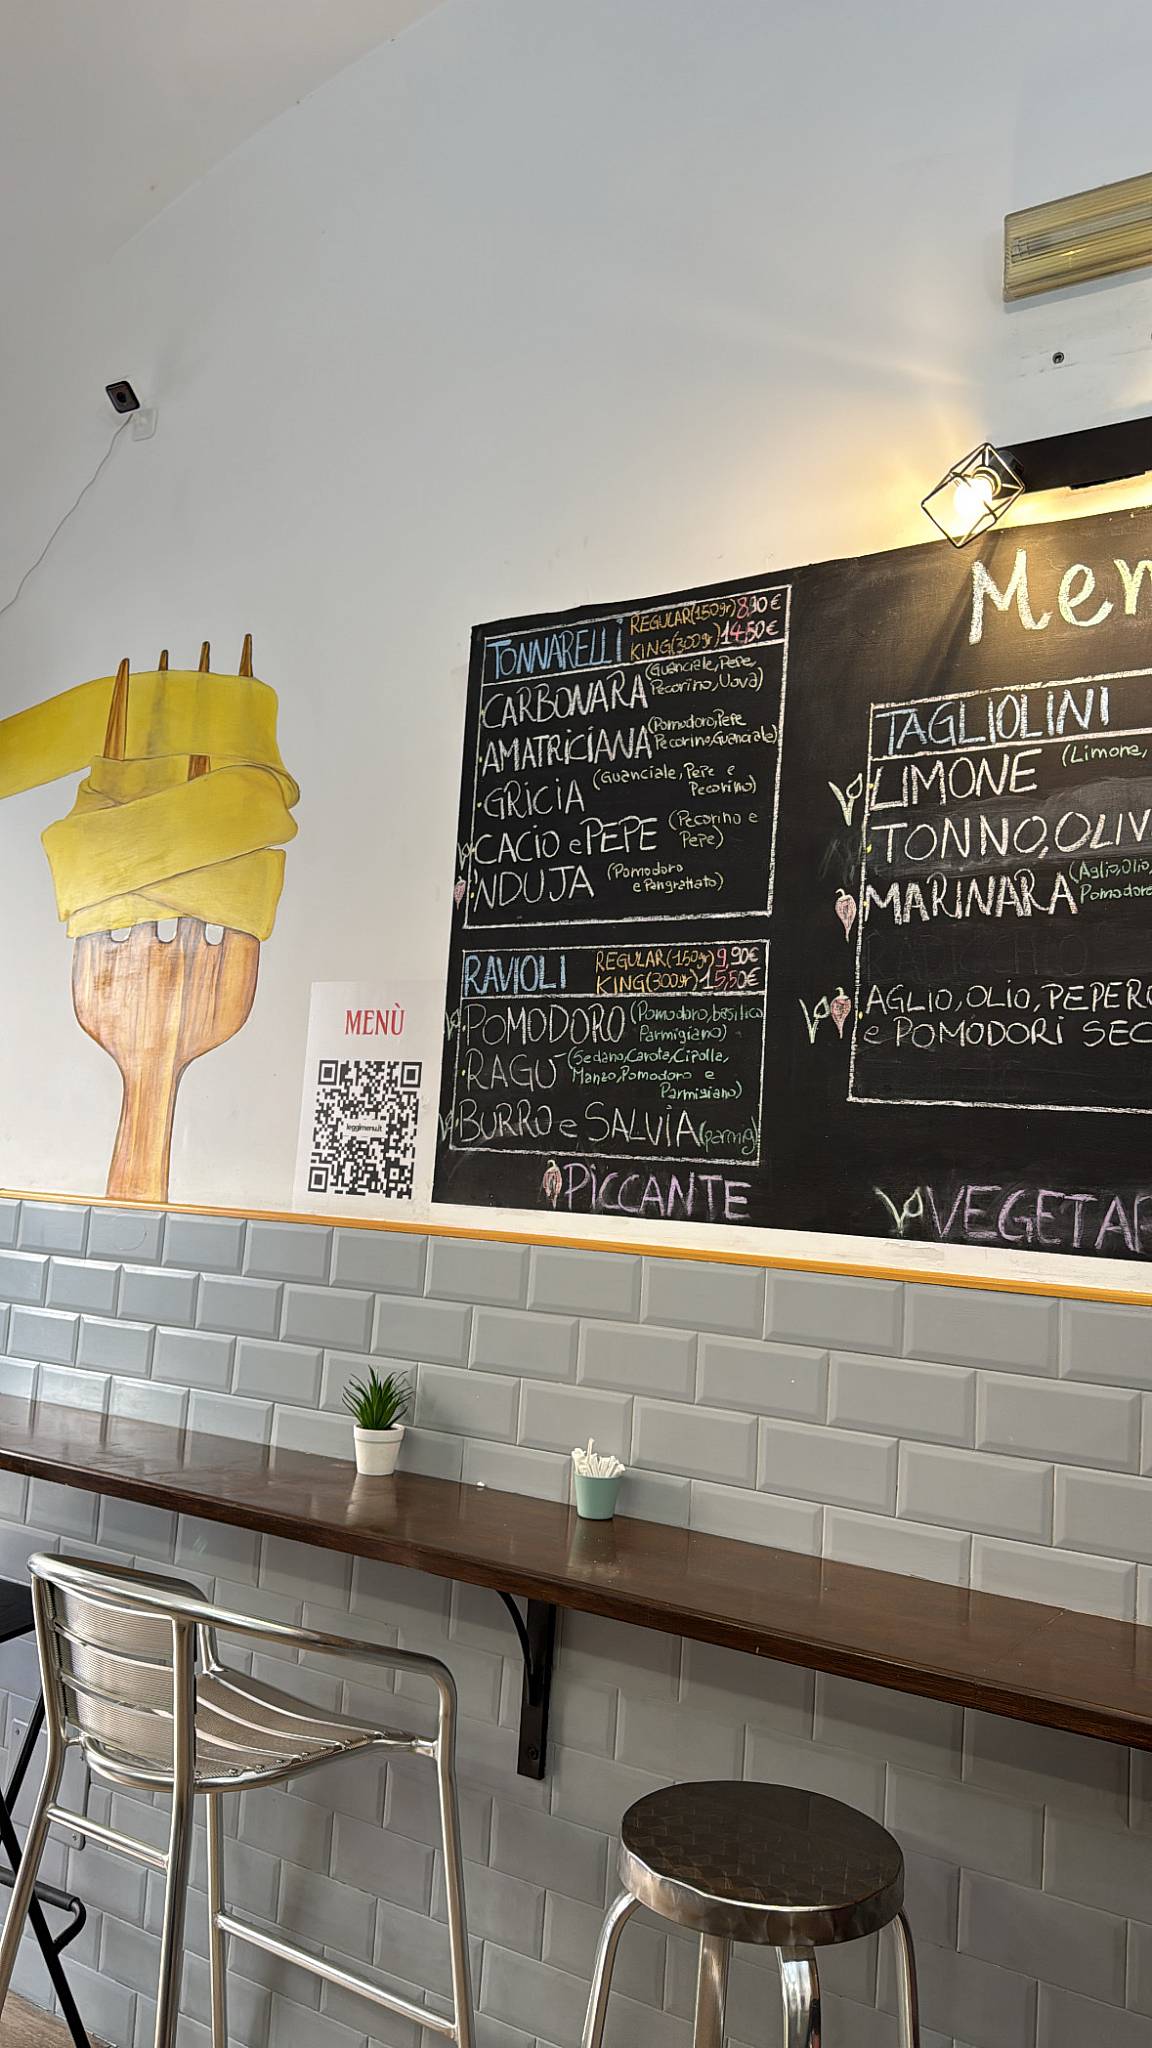 MENÙ
leggimenu.it
TONNARELLI
REGULAR(150gr) 8,90€
KING(300gr) 14,50€
CARBONARA (Guanciale, Pepe,
Pecorino, Uova)
AMATRICIANA (Pomodoro, Pepe
Pecorino, Guanciale)
GRICIA (Guanciale, Pepe e
Pecorino)
CACIO e PEPE (Pecorino e
Pepe)
'NDUJA (Pomodoro
e Pangrattato)
RAVIOLI
REGULAR(150gr) 9,90€
KING(300gr) 15,50€
POMODORO (Pomodoro, basilico
Parmigiano)
RAGÙ (Sedano, Carota, Cipolla,
Manzo, Pomodoro e
Parmigiano)
BURRO e SALVIA (parmig)
PICCANTE
Men
TAGLIOLINI
LIMONE (Limone,
TONNO, OLIV
MARINARA (Aglio, Olio,
Pomodoro
AGLIO, OLIO, PEPERO
e POMODORI SEC
VEGETAR